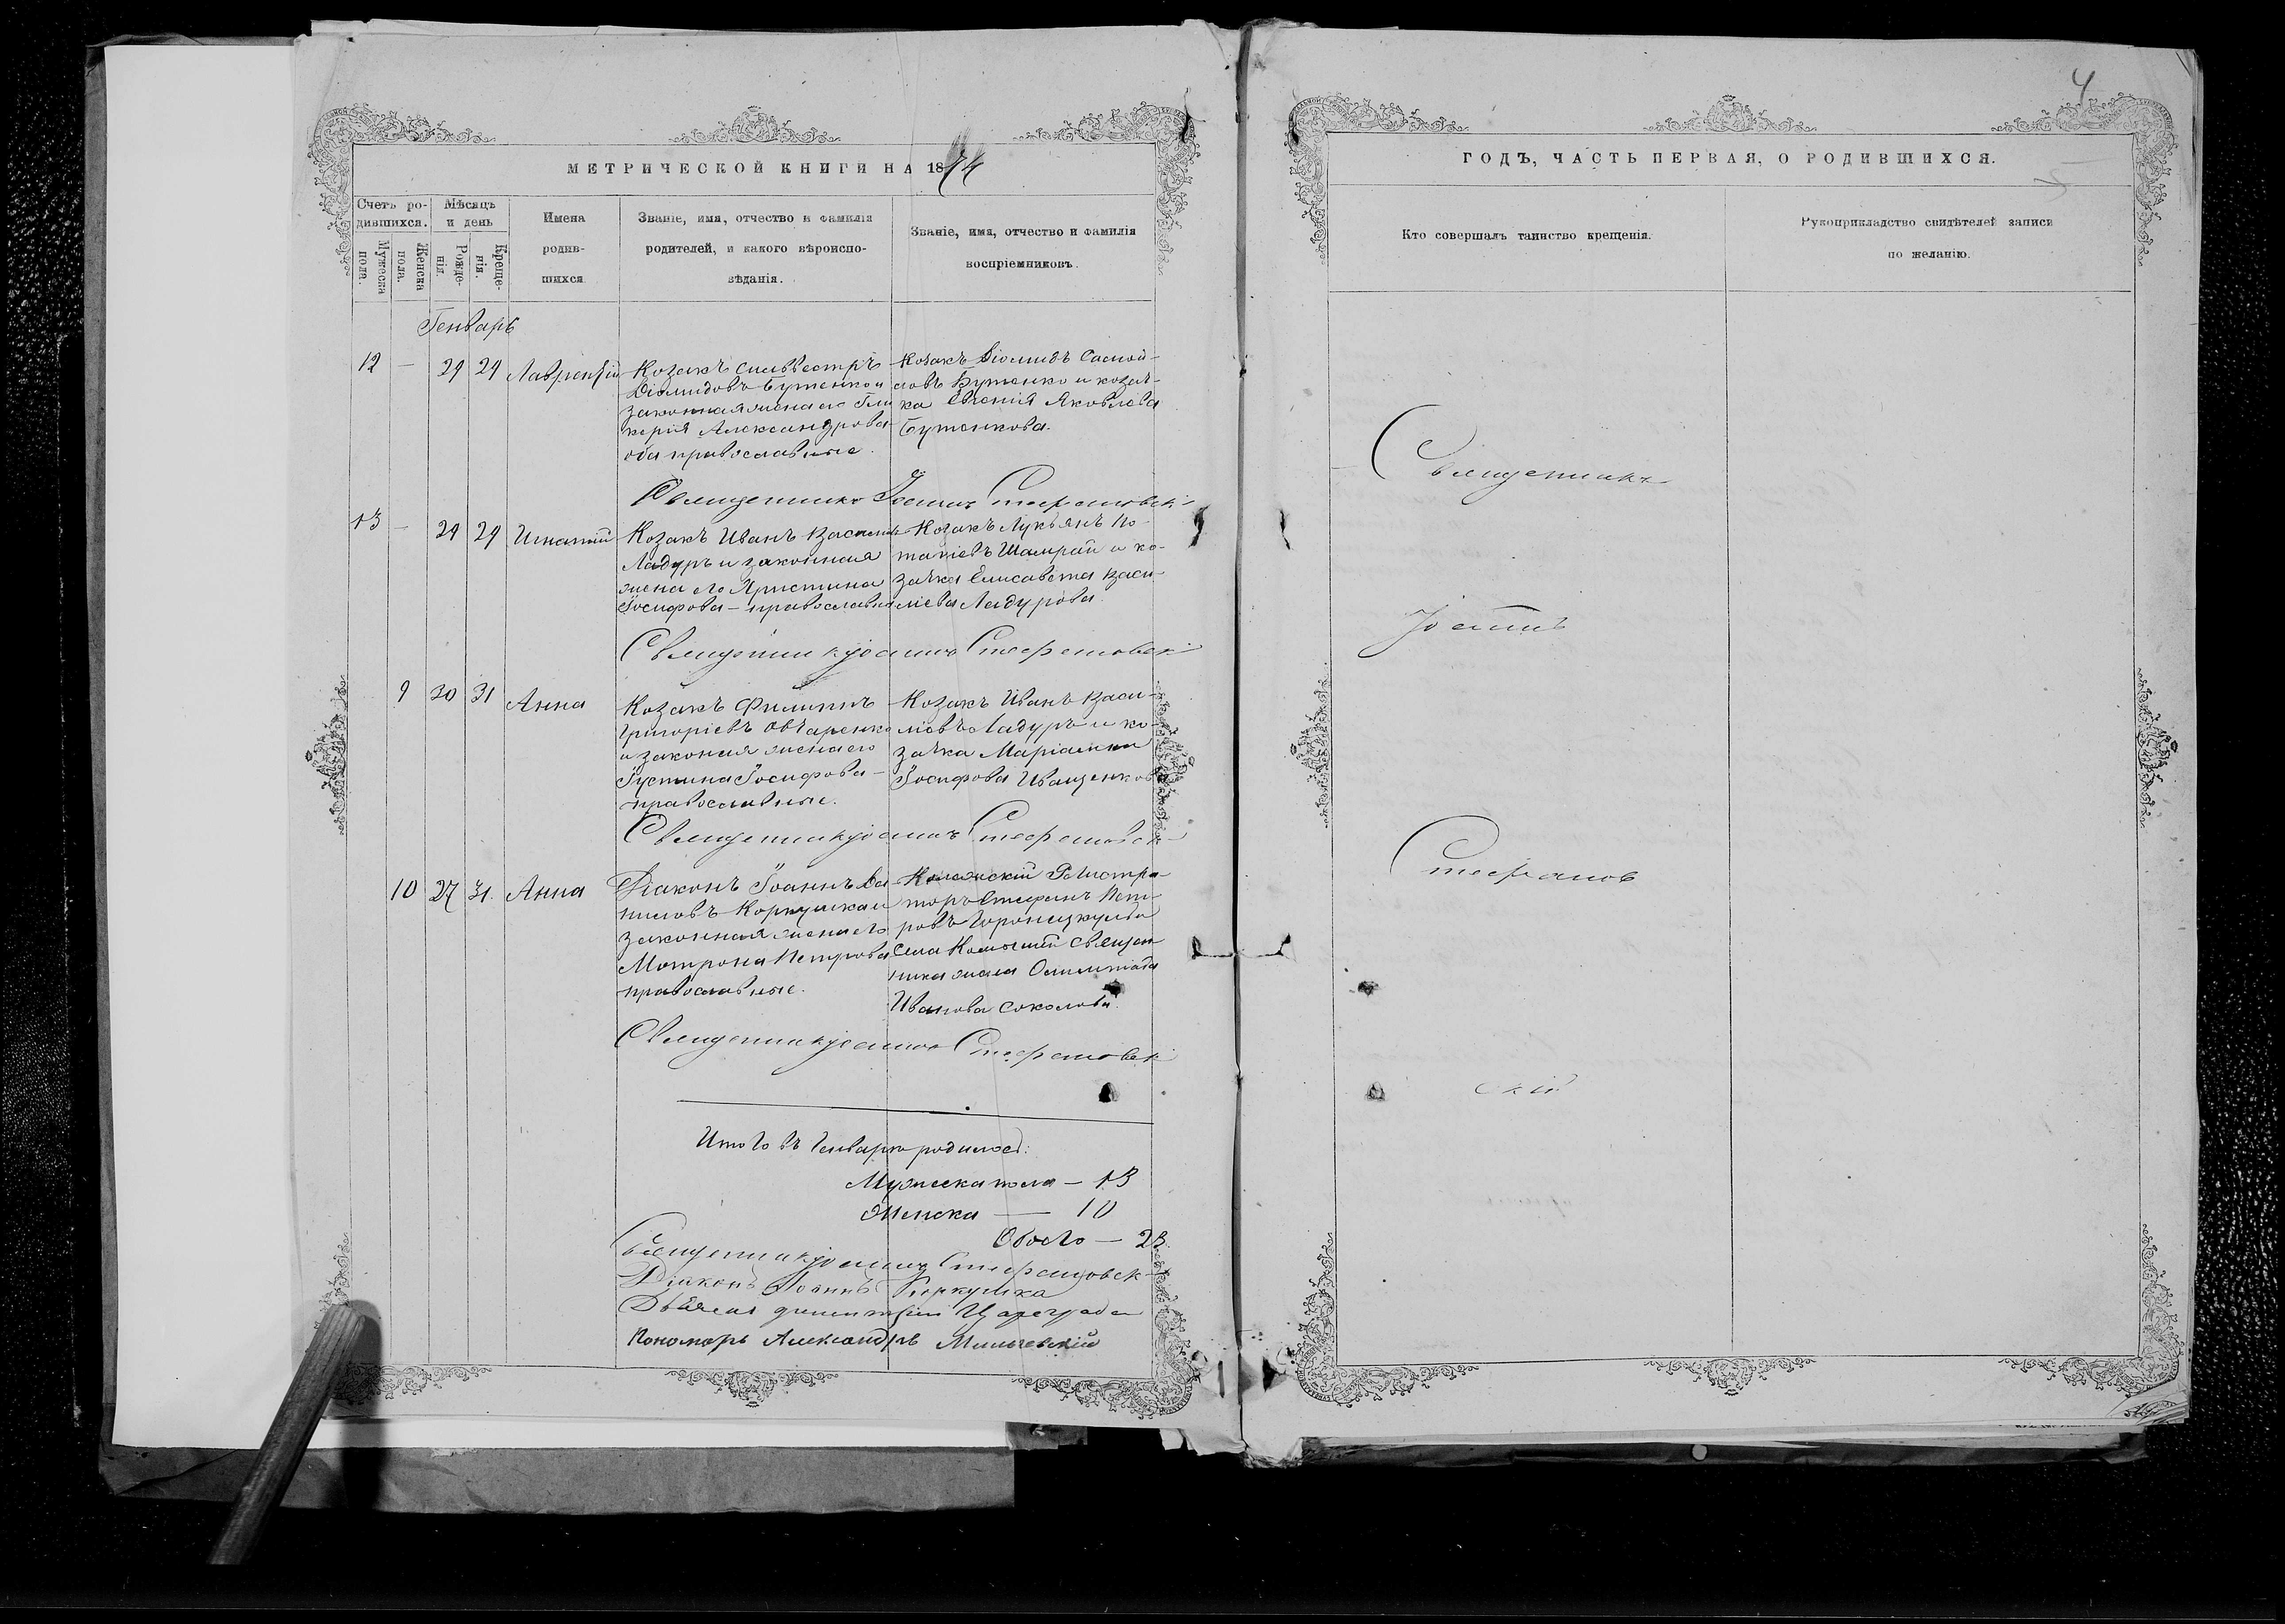 МЕТРИЧЕСКОЙ КНИГИ НА 1874
Счетъ ро-
дившихся.
Мѣсяцъ
и день
Мужеска
пола.
Женска
пола.
Рожде-
нія.
Креще-
нія.
Имена
родив-
шихся
Званіе, имя, отчество и фамилія
родителей, и какого вѣроиспо-
вѣданія.
Званіе, имя, отчество и фамилія
воспріемниковъ.
Генварь
12 — 29 29 Лаврентій
Козакъ Сильвестръ
Діомидовъ Бутенко и
законная жена его Гли
керія Александрова
оба православные.
Козакъ Діомидъ Самой-
ловъ Бутенко и козач-
ка Евгенія Яковлева
Бутенкова.
Священникъ Іоаннъ Стефановскі
13 — 29 29 Игнатій
Козакъ Иванъ Василь
Ладуръ и законная
жена его Христина
Іосифова — православн
Козакъ Лукьянъ По-
тапіевъ Шамрай и ко-
зачка Елисавета Васи-
ліева Ладурова.
Священникъ Іоаннъ Стефановскі
9 30 31 Анна
Козакъ Филиппъ
Григоріевъ Овчаренко
и законая жена его
Іустина Іосифова —
православные.
Козакъ Иванъ Васи-
ліевъ Ладуръ и ко-
зачка Маріамна
Іосифова Иващенков
Священникъ Іоаннъ Стефановск
10 27 31. Анна
Діаконъ Іоаннъ Да
ниловъ Коркушка и
законная жена его
Матрона Петрова
православные.
Колежскій Регистра-
торъ Стефанъ Пет-
ровъ
Села священ
ника жена Олимпіада
Иванова Соколова.
Священникъ Іоаннъ Стефановскі
Итого въ Генварѣ родилось:
Мужеска пола — 13
Женска — 10
Обоего — 23.
Священникъ Іоаннъ Стефановск
Діаконъ Іоаннъ Коркушка
Пономарь Александръ
4
ГОДЪ, ЧАСТЬ ПЕРВАЯ, О РОДИВШИХСЯ.
Кто совершалъ таинство крещенія.
Рукоприкладство свидѣтелей записи
по желанію.
Священникъ
Іоаннъ
Стефанов
скій